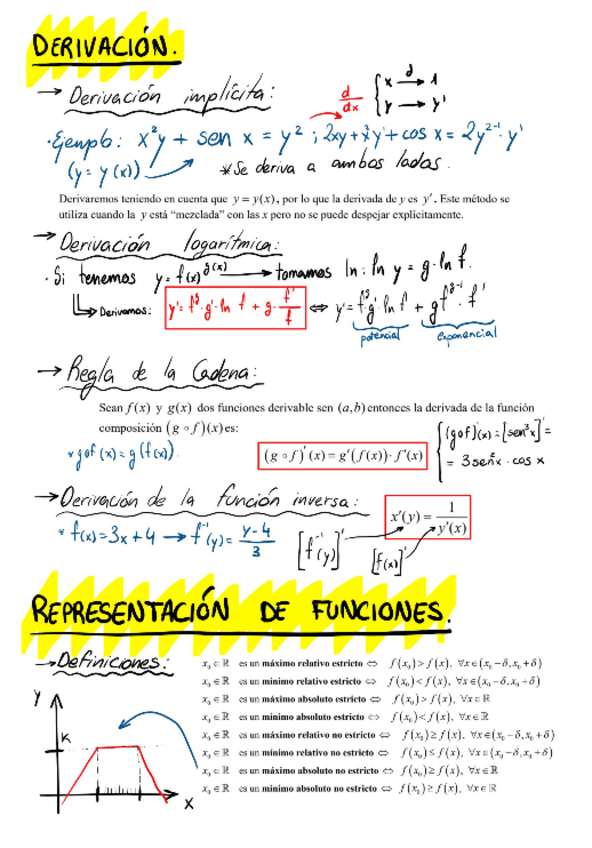 DERIVACIÓN.
→ Derivación implícita:
d/dx { x → d → 1
y → y'
• Ejemplo: x²y + sen x = y² ; 2xy + x²y' + cos x = 2y²⁻¹ · y'
(y = y(x))
* Se deriva a ambos lados.
Derivaremos teniendo en cuenta que y = y(x), por lo que la derivada de y es y'. Este método se
utiliza cuando la y está “mezclada” con las x pero no se puede despejar explícitamente.
→ Derivación logarítmica:
• Si tenemos y = f(x)^g(x) → tomamos ln: ln y = g · ln f.
Derivamos: y' = f^g · g' · ln f + g · f'/f ⇔ y' = f^g g' ln f + g f^(g-1) · f'
potencial exponencial
→ Regla de la Cadena:
Sean f(x) y g(x) dos funciones derivable sen (a,b) entonces la derivada de la función
composición (g ∘ f)(x) es:
* g∘f (x) = g(f(x)).
(g ∘ f)'(x) = g'(f(x))· f'(x)
(g∘f)'(x) = [sen³x]' =
= 3sen²x · cos x
→ Derivación de la función inversa:
* f(x) = 3x + 4 → f⁻¹(y) = y-4/3
[f⁻¹(y)]'
x'(y) = 1/y'(x)
[f(x)]'
REPRESENTACIÓN DE FUNCIONES.
→ Definiciones:
x₀ ∈ ℝ es un máximo relativo estricto ⇔ f(x₀) > f(x), ∀x ∈ (x₀ − δ, x₀ + δ)
x₀ ∈ ℝ es un mínimo relativo estricto ⇔ f(x₀) < f(x), ∀x ∈ (x₀ − δ, x₀ + δ)
x₀ ∈ ℝ es un máximo absoluto estricto ⇔ f(x₀) > f(x), ∀x ∈ ℝ
x₀ ∈ ℝ es un mínimo absoluto estricto ⇔ f(x₀) < f(x), ∀x ∈ ℝ
x₀ ∈ ℝ es un máximo relativo no estricto ⇔ f(x₀) ≥ f(x), ∀x ∈ (x₀ − δ, x₀ + δ)
x₀ ∈ ℝ es un mínimo relativo no estricto ⇔ f(x₀) ≤ f(x), ∀x ∈ (x₀ − δ, x₀ + δ)
x₀ ∈ ℝ es un máximo absoluto no estricto ⇔ f(x₀) ≥ f(x), ∀x ∈ ℝ
x₀ ∈ ℝ es un mínimo absoluto no estricto ⇔ f(x₀) ≥ f(x), ∀x ∈ ℝ
y
K
x